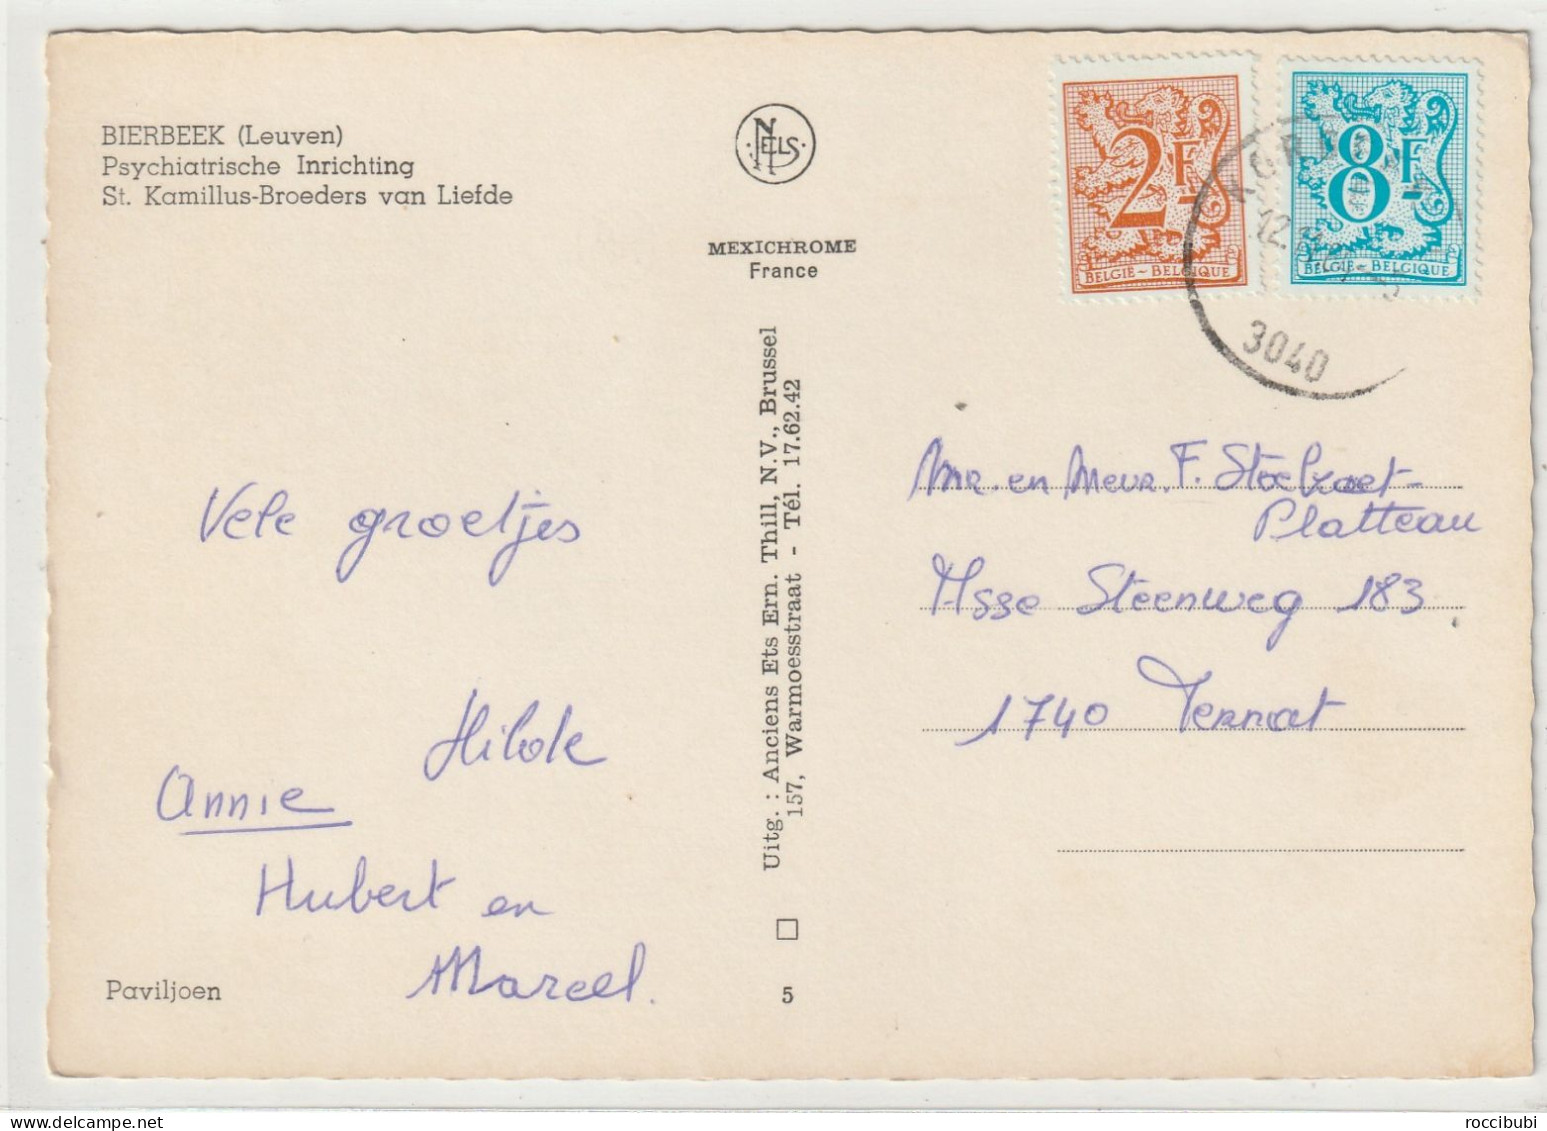 BIERBEEK (Leuven)
Psychiatrische Inrichting
St. Kamillus-Broeders van Liefde
NELS
MEXICHROME
France
2F
BELGIË~BELGIQUE
8F
BELGIË~BELGIQUE
12.
3040
Uitg. : Anciens Ets Ern. Thill, N.V., Brussel
157, Warmoesstraat - Tél. 17.62.42
Vele groetjes
Hilde
Annie
Hubert en
Marcel.
Mr. en Mevr. F. Stoelzaet-
Platteau
Asse Steenweg 183
1740 Ternat
Paviljoen
5
roccibubi